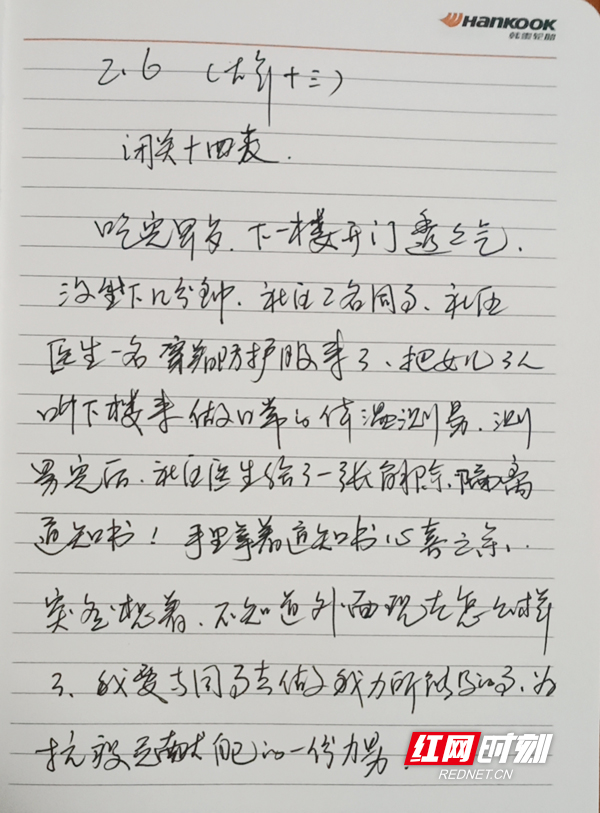 HANKOOK
韩泰轮胎
2.6 (大年十三)
闭关十四天.
吃完早饭、下一楼开门透透气.
没坐下几分钟、社区2名同事、社区
医生一名穿着防护服来了、把女儿3人
叫下楼来做日常的体温测量、测
量完后、社区医生给了一张解除隔离
通知书！手里拿着通知书心喜之余、
突然想着、不知道外面现在怎么样
了、我要与同事去做我力所能及的事、为
抗疫贡献自己的一份力量.
红网时刻
REDNET.CN